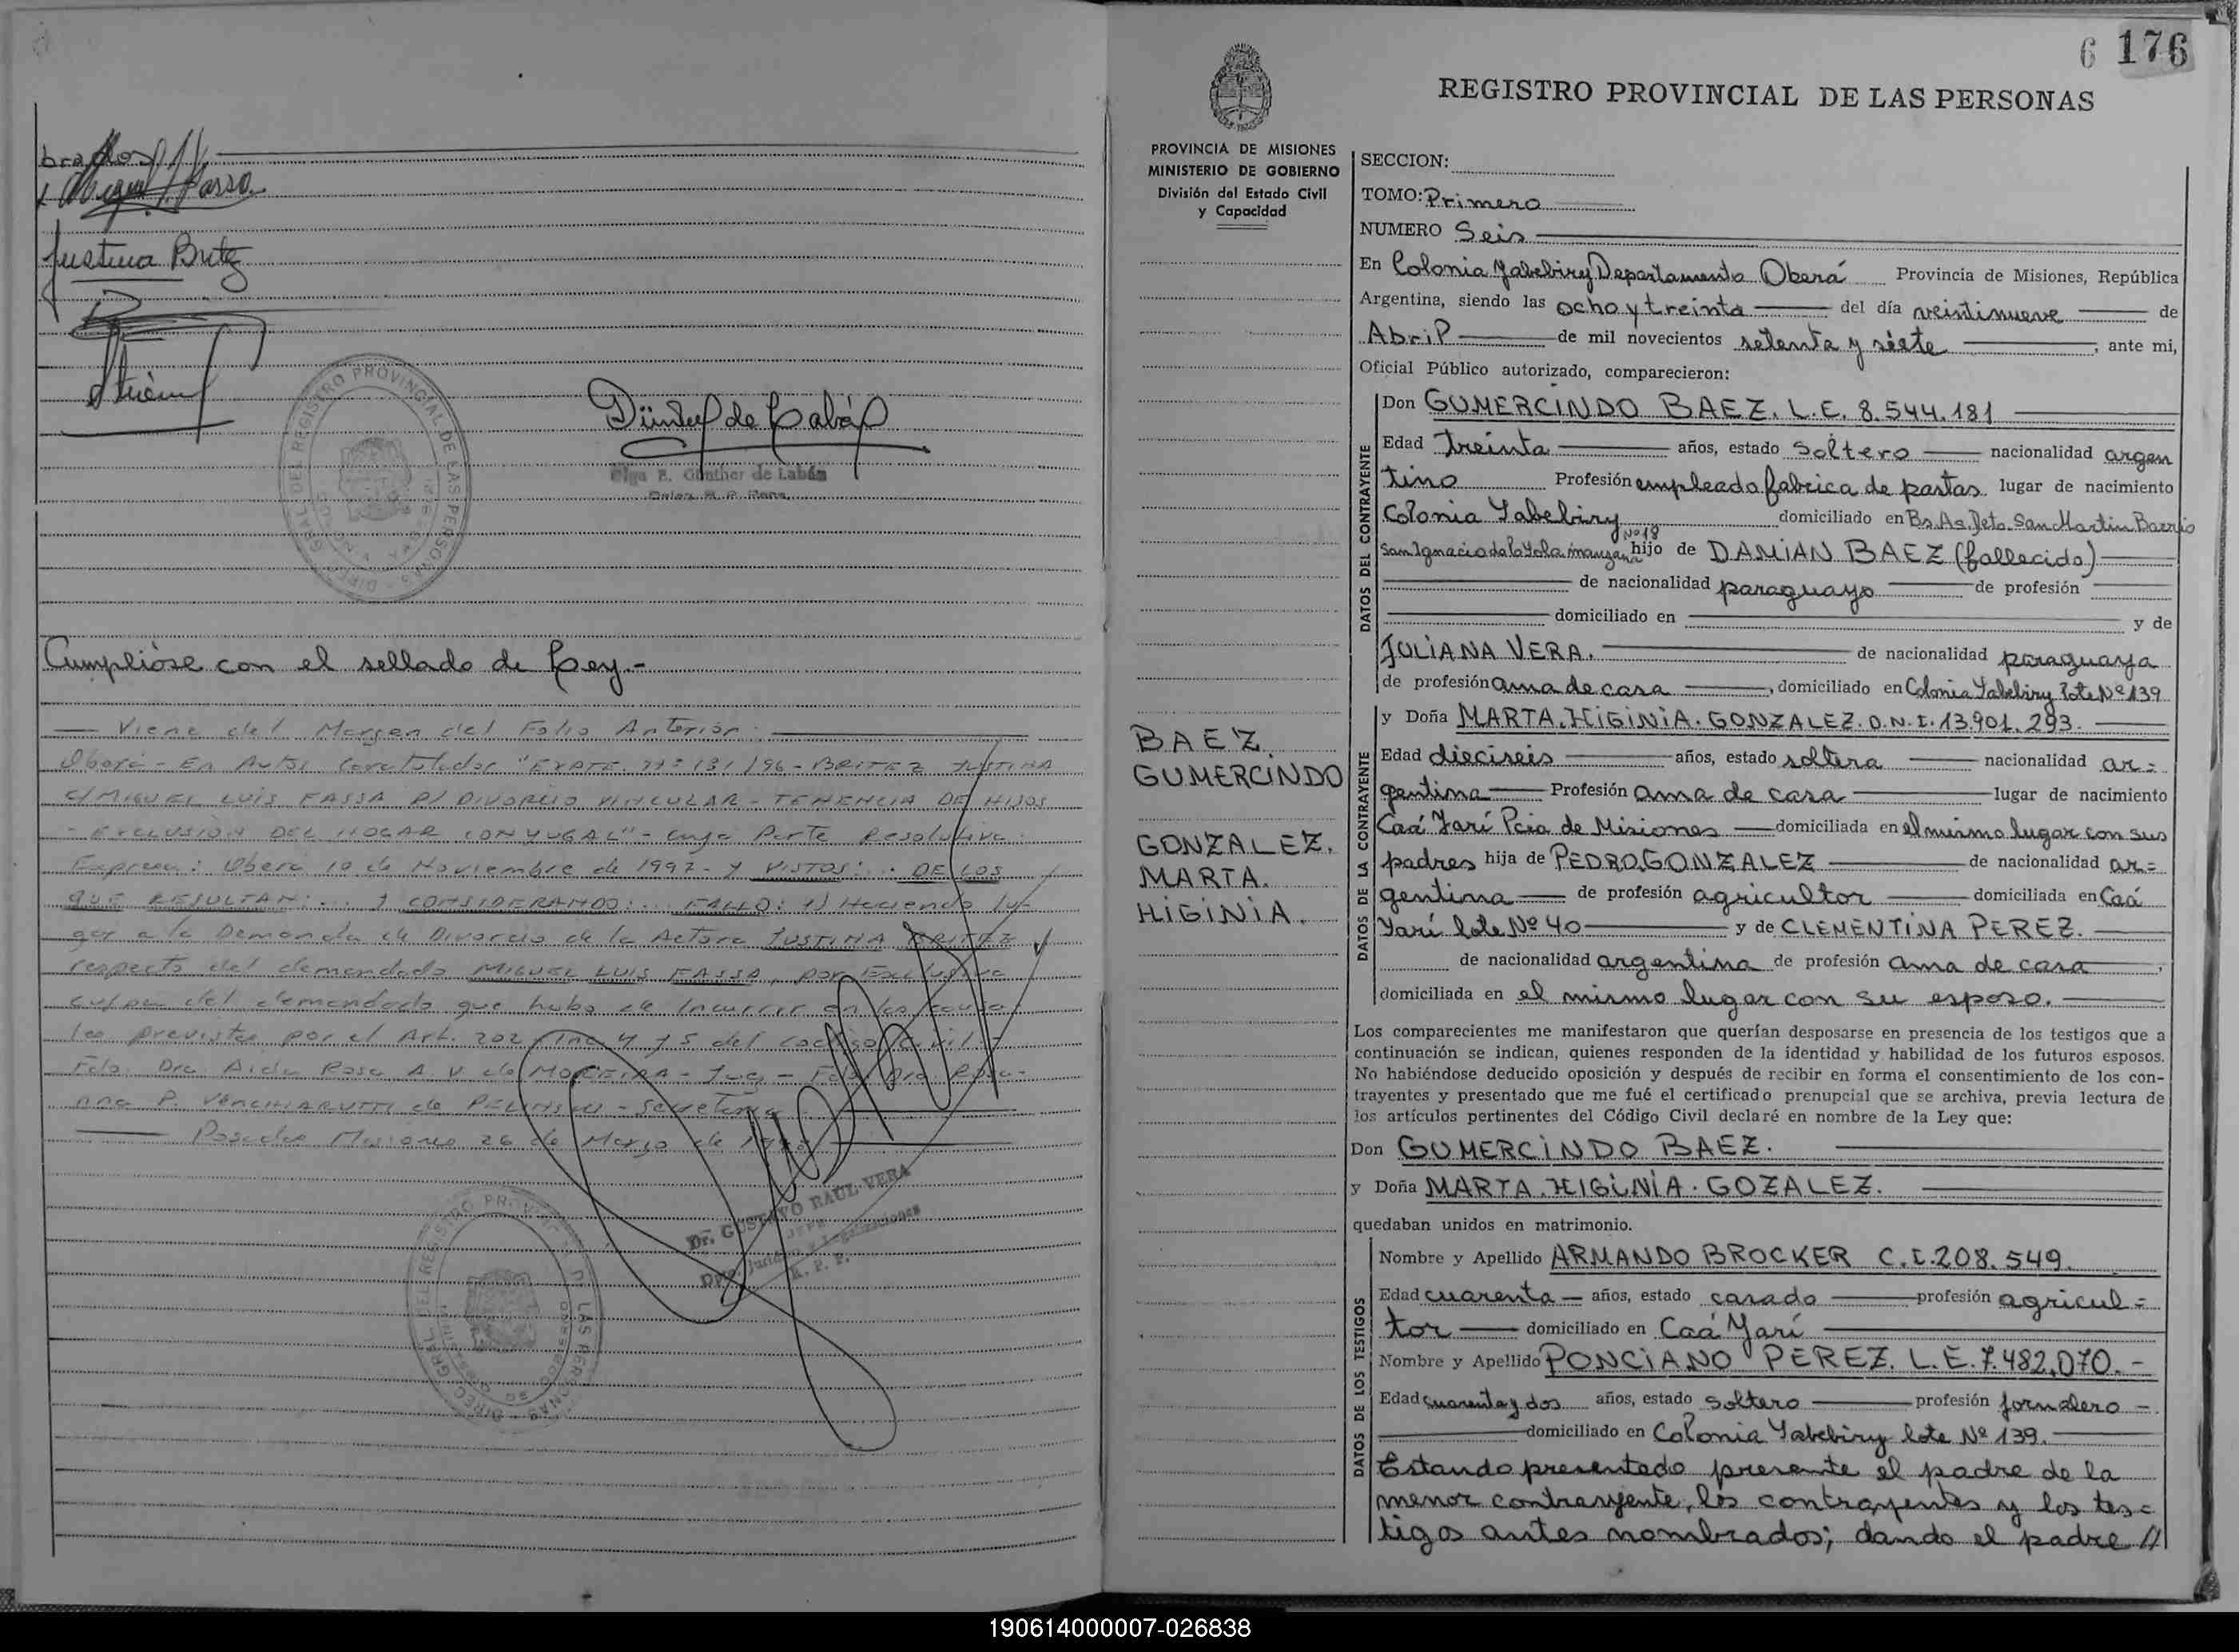 brados
Miguel L. Fassa
Justina Britez
DIREC. GRAL. DEL REGISTRO PROVINCIAL DE LAS PERSONAS
Günther de Labán
Olga E. Günther de Labán
Cumplióse con el sellado de Ley.-
— Viene del Margen del Folio Anterior:
Oberá - En Autos Caratulados "EXPTE. Nº 131/96 - BRITEZ JUSTINA
C/ MIGUEL LUIS FASSA P/ DIVORCIO VINCULAR - TENENCIA DE HIJOS
- EXCLUSION DEL HOGAR CONYUGAL" - cuya Parte Resolutiva
Expresa: Oberá 10 de Noviembre de 1997 - Y VISTOS: .. DE LOS
QUE RESULTAN: ... Y CONSIDERANDO: ... FALLO: 1) Haciendo lu-
gar a la Demanda de Divorcio de la Actora JUSTINA BRITEZ
respecto del demandado MIGUEL LUIS FASSA, por Exclusiva
culpa del demandado que hubo de Incurrir en las causa-
les previstas por el Art. 202 Inc 4 y 5 del Codigo Civil -
Fdo. Dra Aida Rosa A. V. de MOREIRA - Juez - Fdo Dra Rosa-
nna P. VENCHIARUTTI de - Secretaria
— Posadas Misiones 26 de Marzo de 1998
Dr. GUSTAVO RAUL VERA
JEFE
Dpto. Jurídico y Legalizaciones
R. P. P.
DIREC. GRAL. DEL REGISTRO PROVINCIAL DE LAS PERSONAS
6 176
REGISTRO PROVINCIAL DE LAS PERSONAS
PROVINCIA DE MISIONES
MINISTERIO DE GOBIERNO
División del Estado Civil
y Capacidad
BAEZ
GUMERCINDO
GONZALEZ.
MARTA.
HIGINIA.
SECCION:
TOMO: Primero
NUMERO Seis
En Colonia Yabebiry Departamento Oberá Provincia de Misiones, República
Argentina, siendo las ocho y treinta del día veintinueve de
Abril de mil novecientos setenta y siete, ante mi,
Oficial Público autorizado, comparecieron:
DATOS DEL CONTRAYENTE
Don GUMERCINDO BAEZ. L.E. 8.544.181
Edad treinta años, estado soltero nacionalidad argen
tino Profesión empleado fabrica de pastas lugar de nacimiento
Colonia Yabebiry domiciliado en Bs. As. Dto. San Martin Barrio
San Ignacio de Loyola manzana Nº 18 hijo de DAMIAN BAEZ (fallecido)
de nacionalidad paraguayo de profesión
domiciliado en y de
JULIANA VERA. de nacionalidad paraguaya
de profesión ama de casa, domiciliado en Colonia Yabebiry lote Nº 139
DATOS DE LA CONTRAYENTE
y Doña MARTA. HIGINIA. GONZALEZ. D.N.I. 13.901.293.
Edad dieciseis años, estado soltera nacionalidad ar=
gentina Profesión ama de casa lugar de nacimiento
Caá Yarí Pcia de Misiones domiciliada en el mismo lugar con sus
padres hija de PEDRO GONZALEZ de nacionalidad ar=
gentina de profesión agricultor domiciliada en Caá
Yarí lote Nº 40 y de CLEMENTINA PEREZ.
de nacionalidad argentina de profesión ama de casa,
domiciliada en el mismo lugar con su esposo.
Los comparecientes me manifestaron que querían desposarse en presencia de los testigos que a
continuación se indican, quienes responden de la identidad y habilidad de los futuros esposos.
No habiéndose deducido oposición y después de recibir en forma el consentimiento de los con-
trayentes y presentado que me fué el certificado prenupcial que se archiva, previa lectura de
los artículos pertinentes del Código Civil declaré en nombre de la Ley que:
Don GUMERCINDO BAEZ.
y Doña MARTA. HIGINIA. GOZALEZ.
quedaban unidos en matrimonio.
DATOS DE LOS TESTIGOS
Nombre y Apellido ARMANDO BROCKER C.I. 208.549.
Edad cuarenta años, estado casado profesión agricul=
tor domiciliado en Caá Yarí
Nombre y Apellido PONCIANO PEREZ. L.E. 7.482.070.-
Edad cuarenta y dos años, estado soltero profesión jornalero -
domiciliado en Colonia Yabebiry lote Nº 139.
Estando presentado presente el padre de la
menor contrayente, los contrayentes y los tes=
tigos antes nombrados; dando el padre //
190614000007-026838